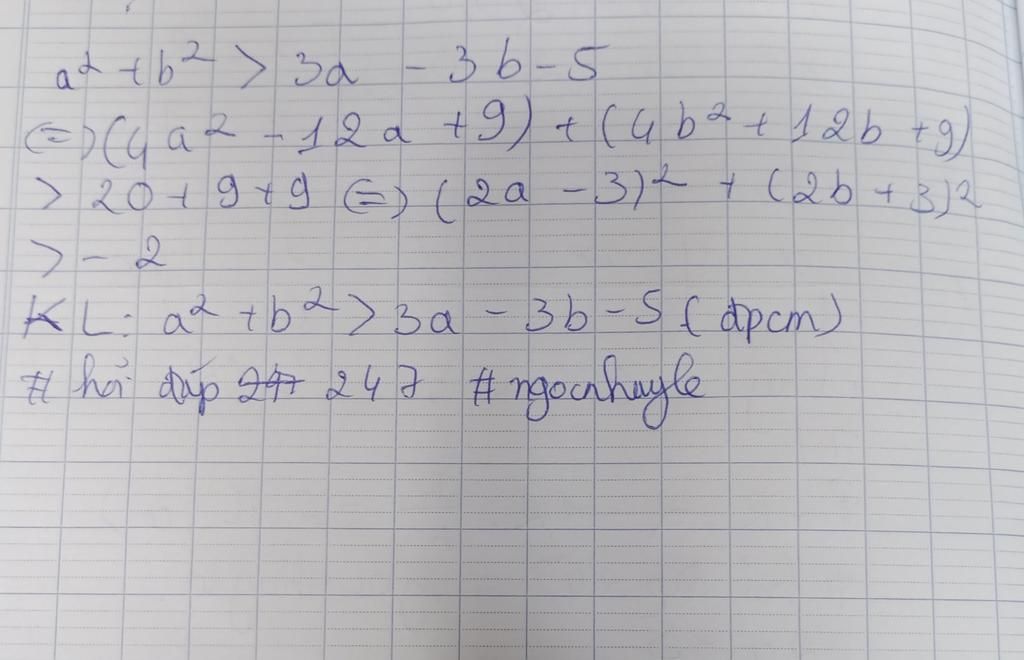 a² + b² > 3a - 3b - 5
(=) (4a² - 12a + 9) + (4b² + 12b + 9)
> 20 + 9 + 9 (=) (2a - 3)² + (2b + 3)²
> - 2
KL: a² + b² > 3a - 3b - 5 (đpcm)
# hỏi đáp 247 247 #ngocnhuyle